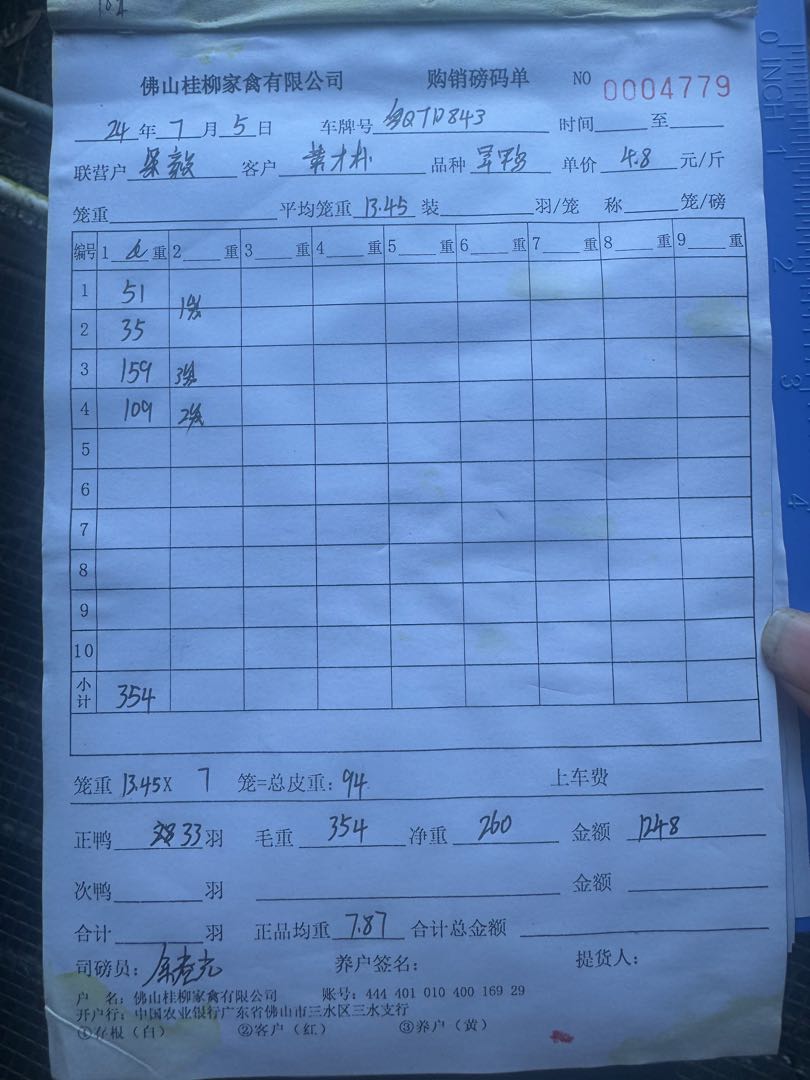 佛山桂柳家禽有限公司 购销磅码单 NO 0004779
24年7月5日 车牌号 QTD843 时间 至
联营户 梁毅 客户 品种 单价 4.8 元/斤
笼重 平均笼重 13.45 装 羽/笼 称 笼/磅
编号 1 重 2 重 3 重 4 重 5 重 6 重 7 重 8 重 9 重
1 51
2 35
3 159
4 109
5
6
7
8
9
10
小计 354
笼重 13.45X 7 笼=总皮重: 94 上车费
正鸭 33 羽 毛重 354 净重 260 金额 1248
次鸭 羽 金额
合计 羽 正品均重 7.87 合计总金额
司磅员: 养户签名: 提货人:
户 名: 佛山桂柳家禽有限公司 账号: 444 401 010 400 169 29
开户行: 中国农业银行广东省佛山市三水区三水支行
①存根(白) ②客户(红) ③养户(黄)
0 INCH 1 2 3 4